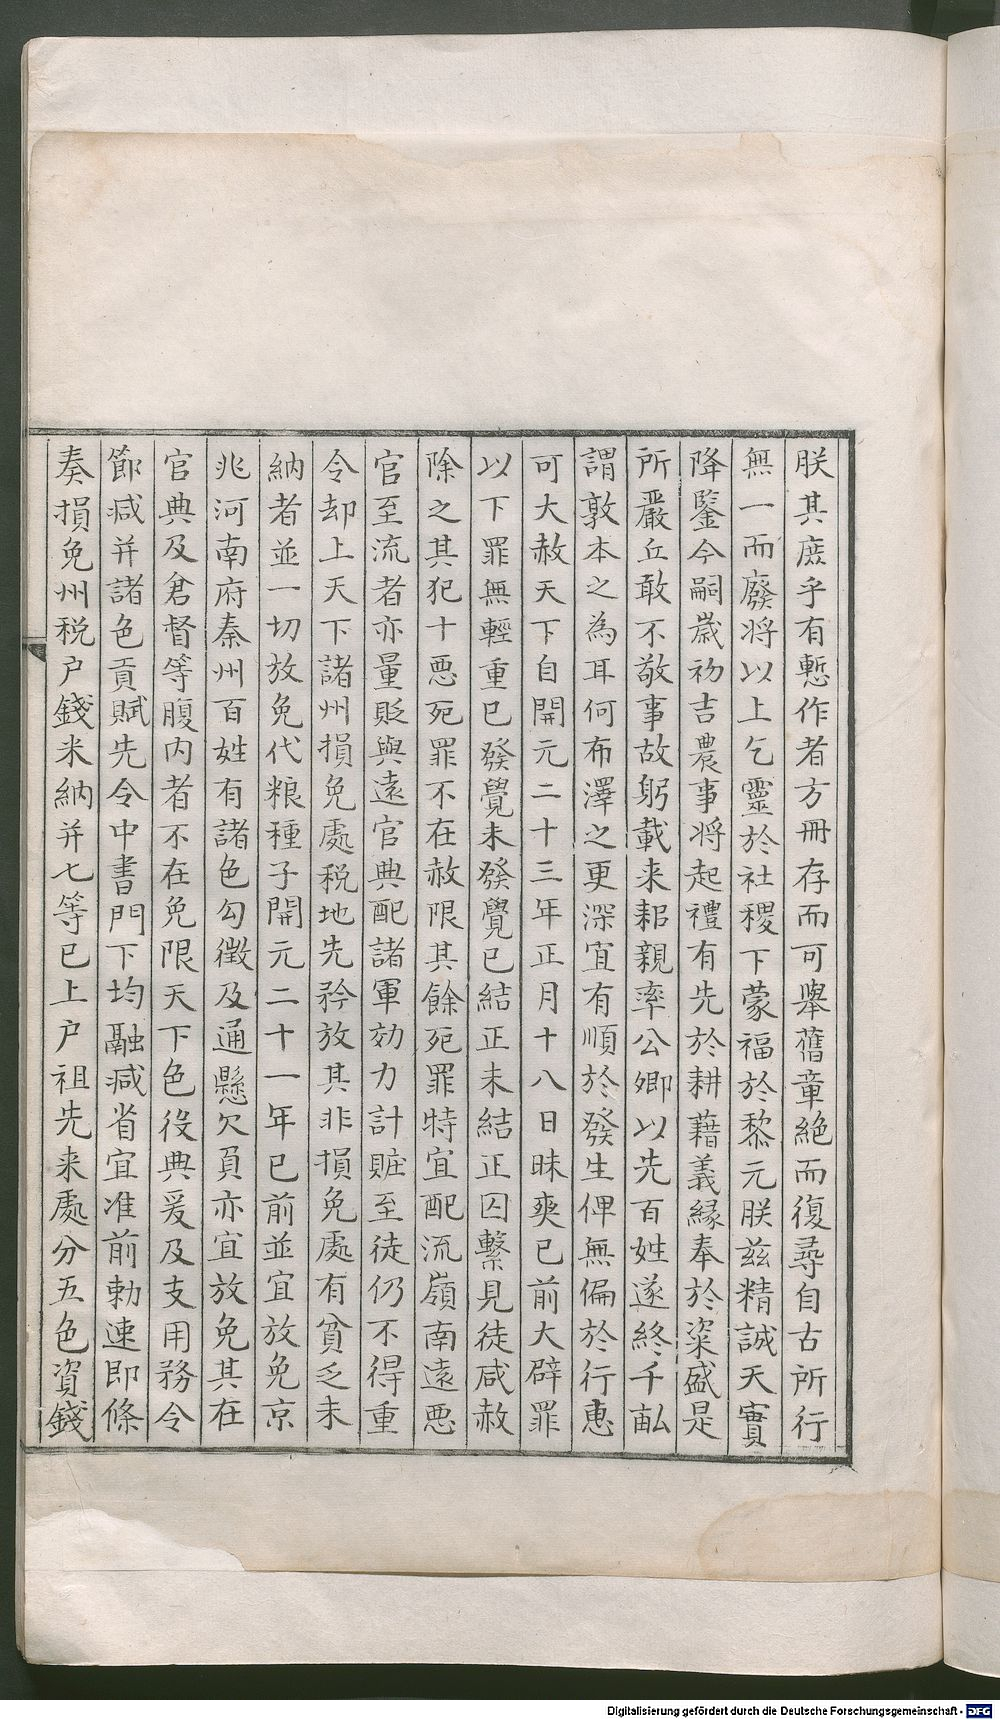 朕其庶乎有慙作者方冊存而可舉舊章絕而復尋自古所行
無一而廢將以上乞靈於社稷下蒙福於黎元朕兹精誠天實
降鑒今嗣歲初吉農事將起禮有先於耕藉義緣奉於粢盛是
所嚴丘敢不敬事故躬載耒耜親率公卿以先百姓遂終千畝
謂敦本之為耳何布澤之更深宜有順於發生俾無偏於行惠
可大赦天下自開元二十三年正月十八日昧爽已前大辟罪
以下罪無輕重已發覺未發覺已結正未結正囚繫見徒咸赦
除之其犯十惡死罪不在赦限其餘死罪特宜配流嶺南遠惡
官至流者亦量貶與遠官典配諸軍効力計賍至徒仍不得重
令却上天下諸州損免處稅地先矜放其非損免處有貧乏未
納者並一切放免代粮種子開元二十一年已前並宜放免京
兆河南府秦州百姓有諸色勾徵及逋懸欠負亦宜放免其在
官典及倉督等腹内者不在免限天下色役典爰及支用務令
節减并諸色貢賦先令中書門下均融减省宜准前勅速即條
奏損免州税户錢米納并七等已上户祖先来處分五色資錢
Digitalisierung gefördert durch die Deutsche Forschungsgemeinschaft - DFG